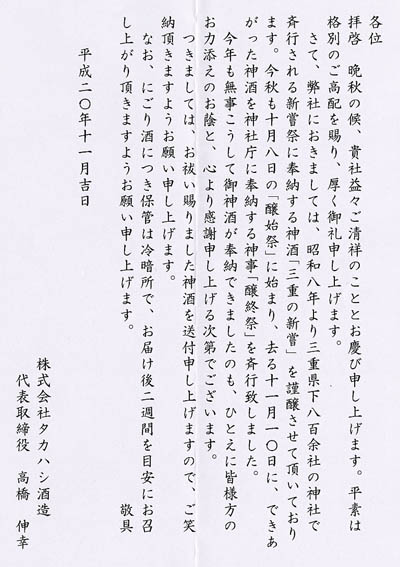 各位
拝啓　晩秋の候、貴社益々ご清祥のこととお慶び申し上げます。平素は
格別のご高配を賜り、厚く御礼申し上げます。
さて、弊社におきましては、昭和八年より三重県下八百余社の神社で
斉行される新嘗祭に奉納する神酒「三重の新嘗」を謹醸させて頂いており
ます。今秋も十月八日の「醸始祭」に始まり、去る十一月一〇日に、できあ
がった神酒を神社庁に奉納する神事「醸終祭」を斉行致しました。
今年も無事こうして御神酒が奉納できましたのも、ひとえに皆様方の
お力添えのお陰と、心より感謝申し上げる次第でございます。
つきましては、お祓い賜りました神酒を送付申し上げますので、ご笑
納頂きますようお願い申し上げます。
なお、にごり酒につき保管は冷暗所で、お届け後二週間を目安にお召
し上がり頂きますようお願い申し上げます。
敬具
平成二〇年十一月吉日
株式会社タカハシ酒造
代表取締役　高橋　伸幸